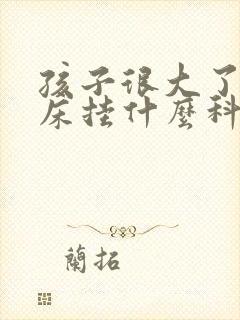 孩子很大了
床挂什麼科
蘭拓